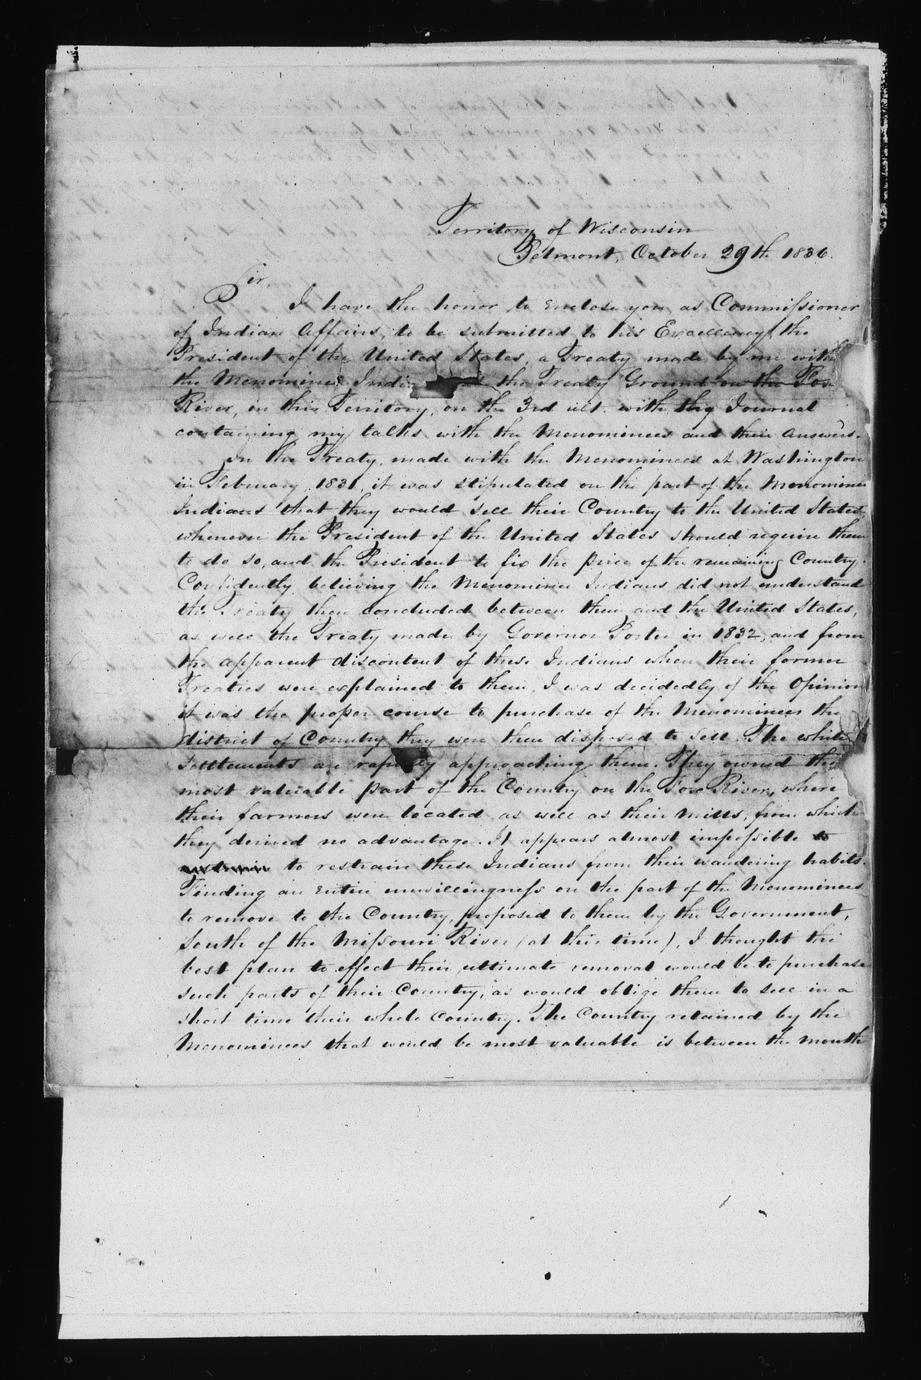 Territory of Wisconsin
Belmont, October 29th 1836.
Sir,
I have the honor to enclose you, as Commissioner
of Indian Affairs, to be submitted to his Excellency the
President of the United States, a Treaty made by me with
the Menominee Indi the Treaty Ground on the Fox
River, in this Territory, on the 3rd ult. with my Journal
containing my talks with the Menominees and their answers.
In the Treaty, made with the Menominees at Washington
in February, 1831, it was stipulated on the part of the Menominee
Indians that they would sell their Country to the United States,
whenever the President of the United States should require them
to do so, and the President to fix the price of the remaining Country.
Confidently believing the Menominee Indians did not understand
the Treaty then concluded between them and the United States,
as well the Treaty made by Governor Porter in 1832, and from
the apparent discontent of these Indians when their former
Treaties were explained to them, I was decidedly of the Opinion
it was the proper course to purchase of the Menominees the
district of Country they were then disposed to sell. The white
settlements are rapidly approaching them. They owned the
most valuable part of the Country on the Fox River, where
their farmers were located as well as their Mills, from which
they derived no advantage. It appears almost impossible to
to restrain these Indians from their wandering habits
Finding an entire unwillingness on the part of the Menominees
to remove to the Country, proposed to them by the Government,
South of the Missouri River (at this time), I thought the
best plan to effect their ultimate removal would be to purchase
such parts of their Country, as would oblige them to sell in a
short time their whole Country. The Country retained by the
Menominees that would be most valuable is between the mouth